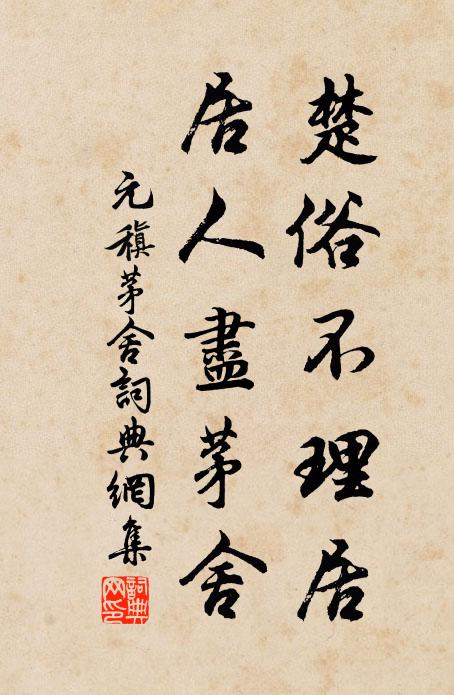 楚俗不理居
居人盡茅舍
元稹茅舍詞典網集
詞典網印